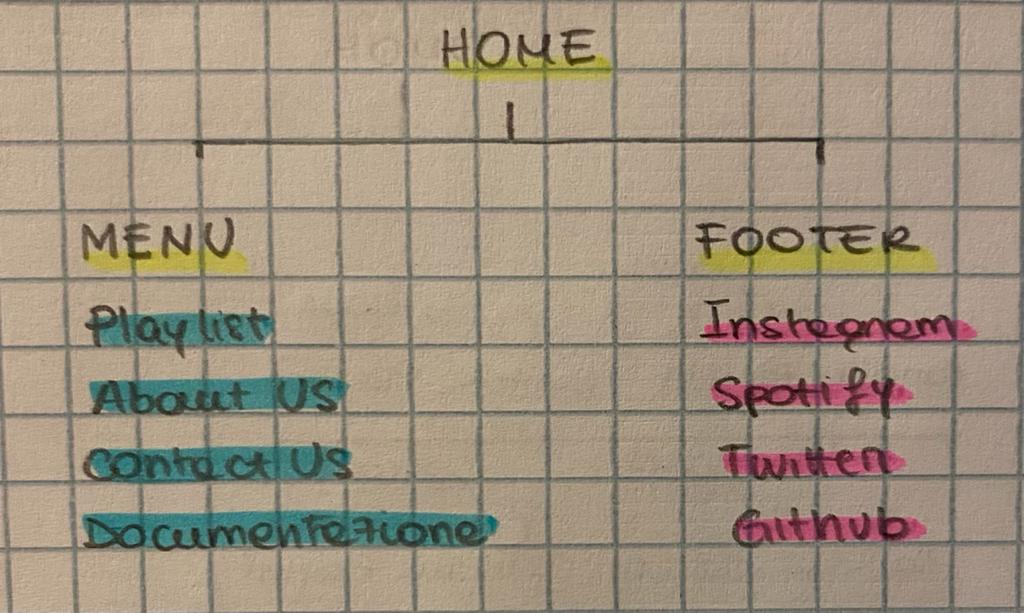 HOME
MENU
FOOTER
Playlist
Instagram
About US
Spotify
Contact Us
Twitter
Documentazione
Github